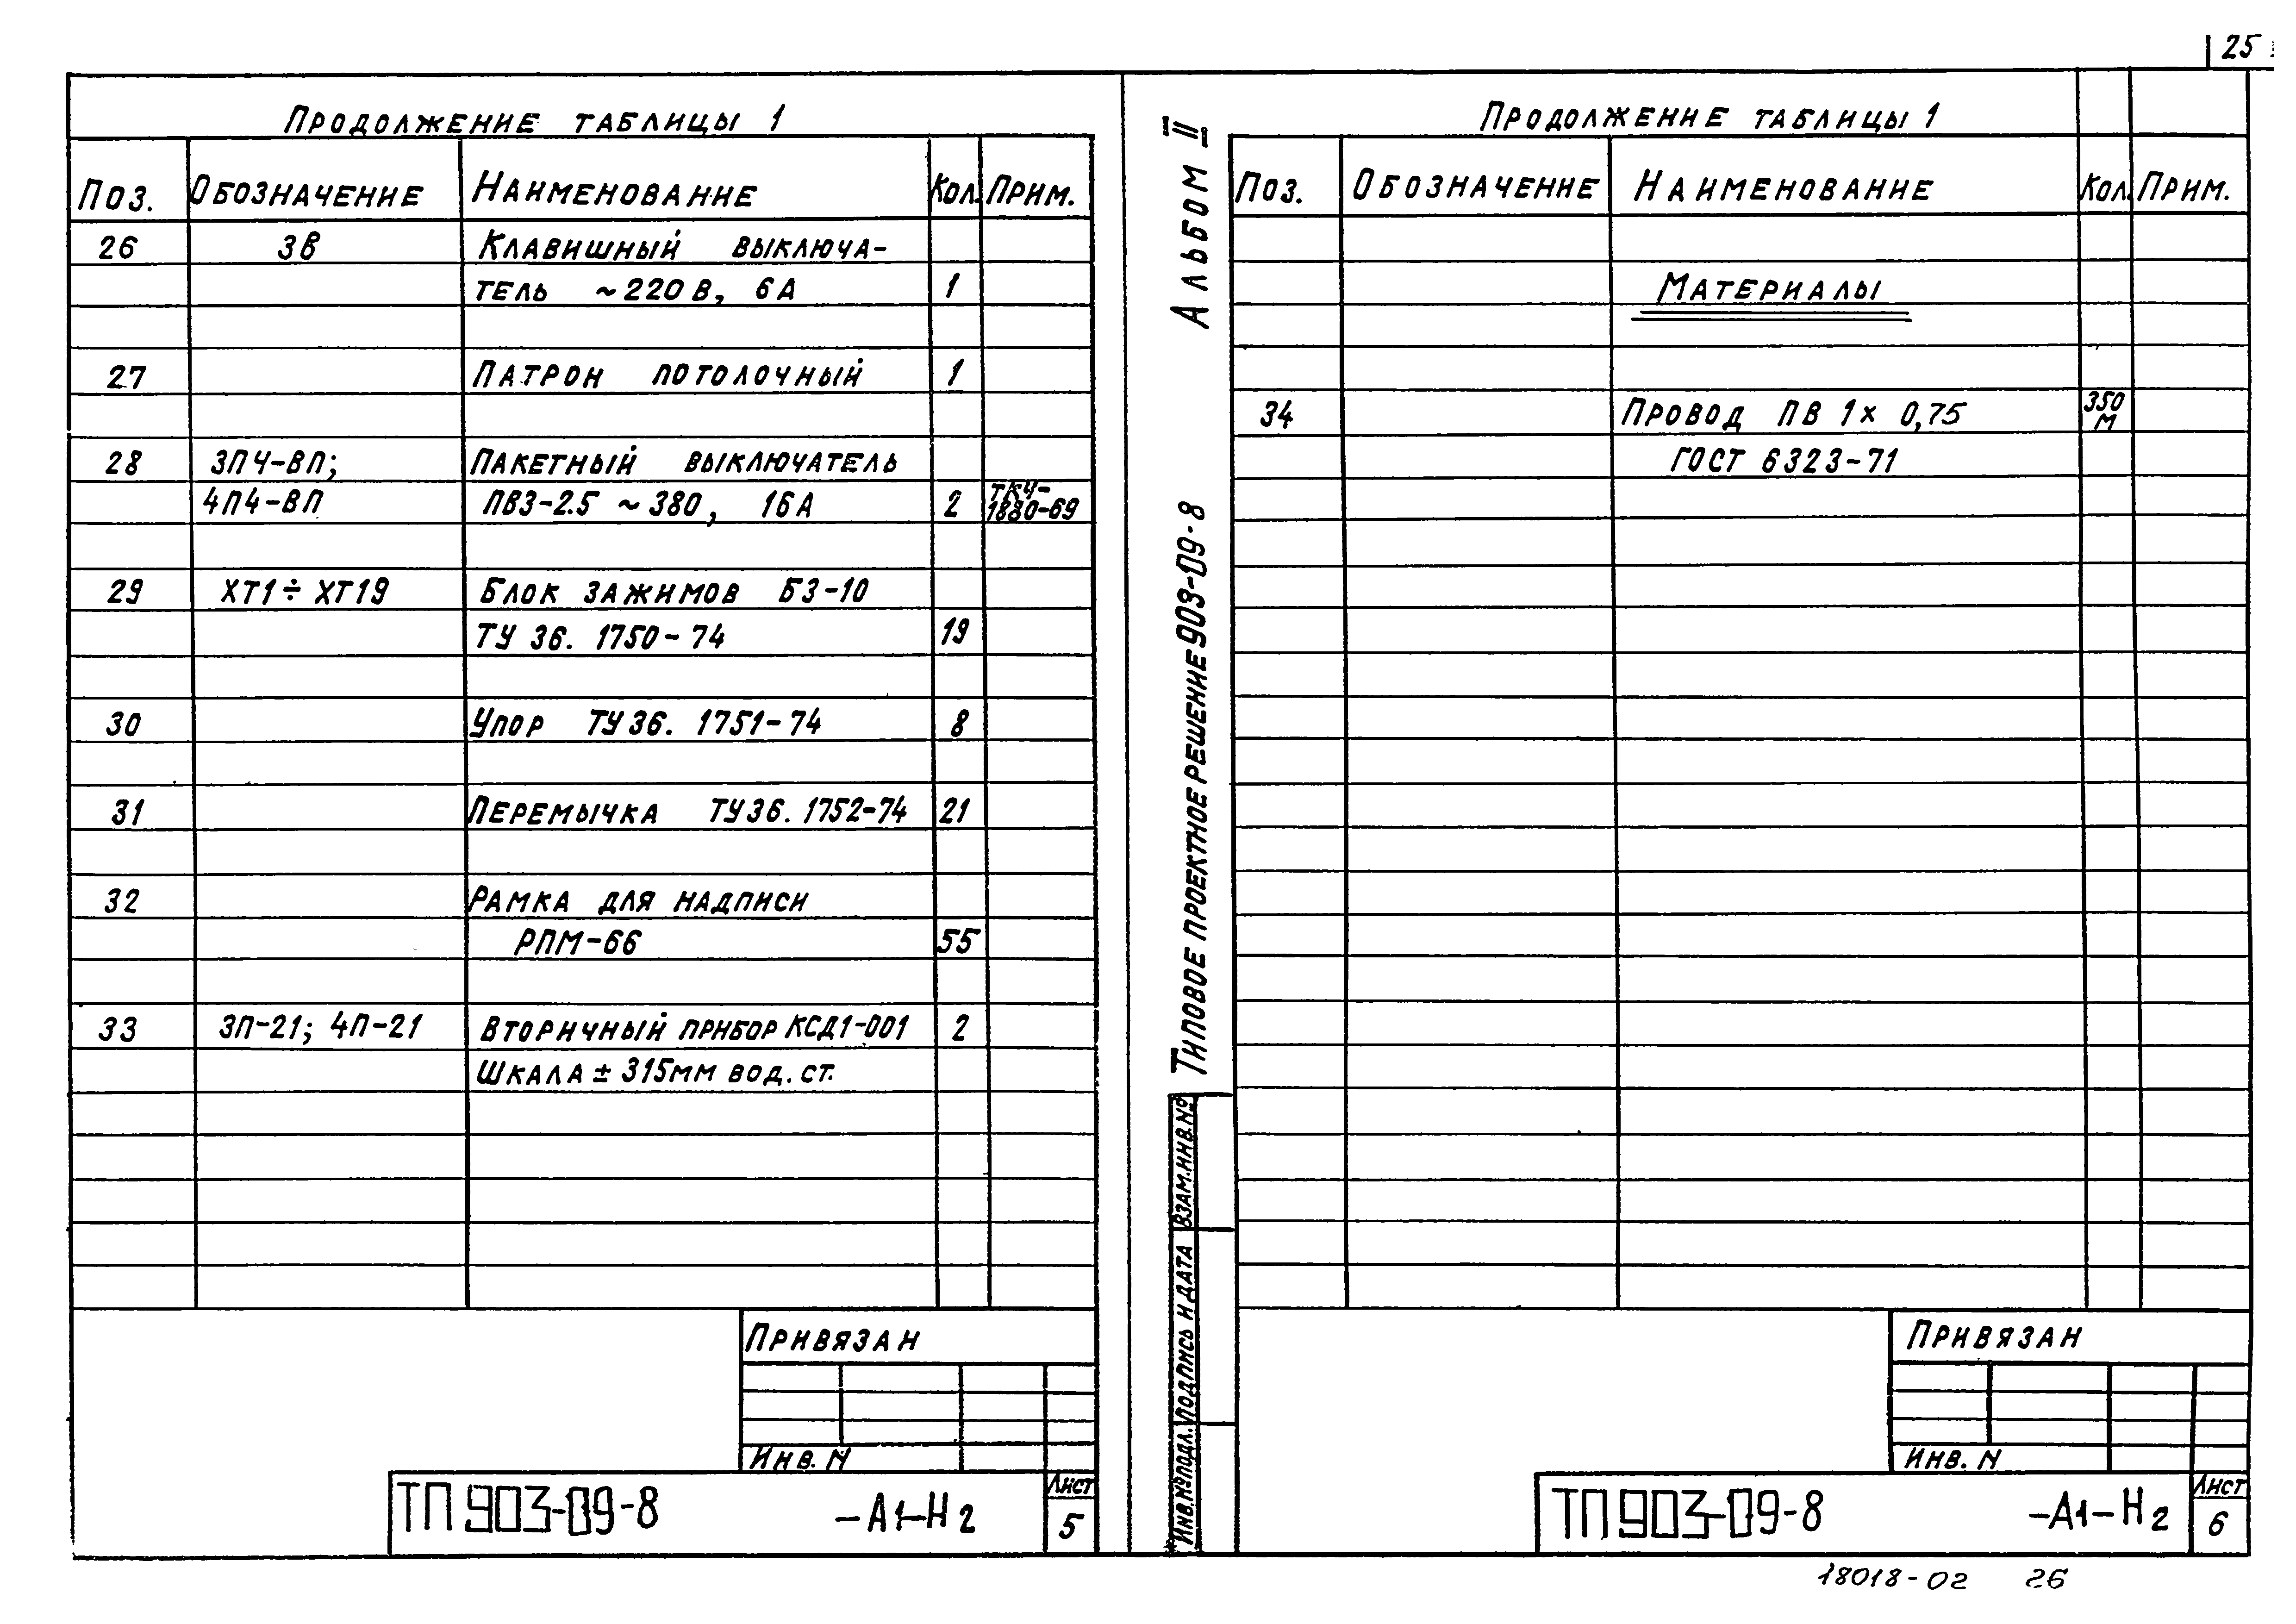 25
Продолжение таблицы 1
Поз. Обозначение Наименование Кол. Прим.
26 3В Клавишный выключа-
тель ~220 В, 6А 1
27 Патрон потолочный 1
28 3П4-ВП; Пакетный выключатель
4П4-ВП ПВ3-2.5 ~380, 16А 2 ТКЧ-
1880-69
29 ХТ1÷ХТ19 Блок зажимов БЗ-10
ТУ 36. 1750-74 19
30 Упор ТУ 36. 1751-74 8
31 Перемычка ТУ 36. 1752-74 21
32 Рамка для надписи
РПМ-66 55
33 3П-21; 4П-21 Вторичный прибор КСД1-001 2
Шкала ± 315мм вод. ст.
Привязан
Инв. N
ТП 903-09-8 -А1-Н2
Лист
5
Альбом II
Типовое проектное решение 903-09-8
Взам.инв.№
Подпись и дата
Инв.№подл.
Продолжение таблицы 1
Поз. Обозначение Наименование Кол. Прим.
Материалы
34 Провод ПВ 1× 0,75 350
м
ГОСТ 6323-71
Привязан
Инв. N
ТП 903-09-8 -А1-Н2
Лист
6
18018-02 26